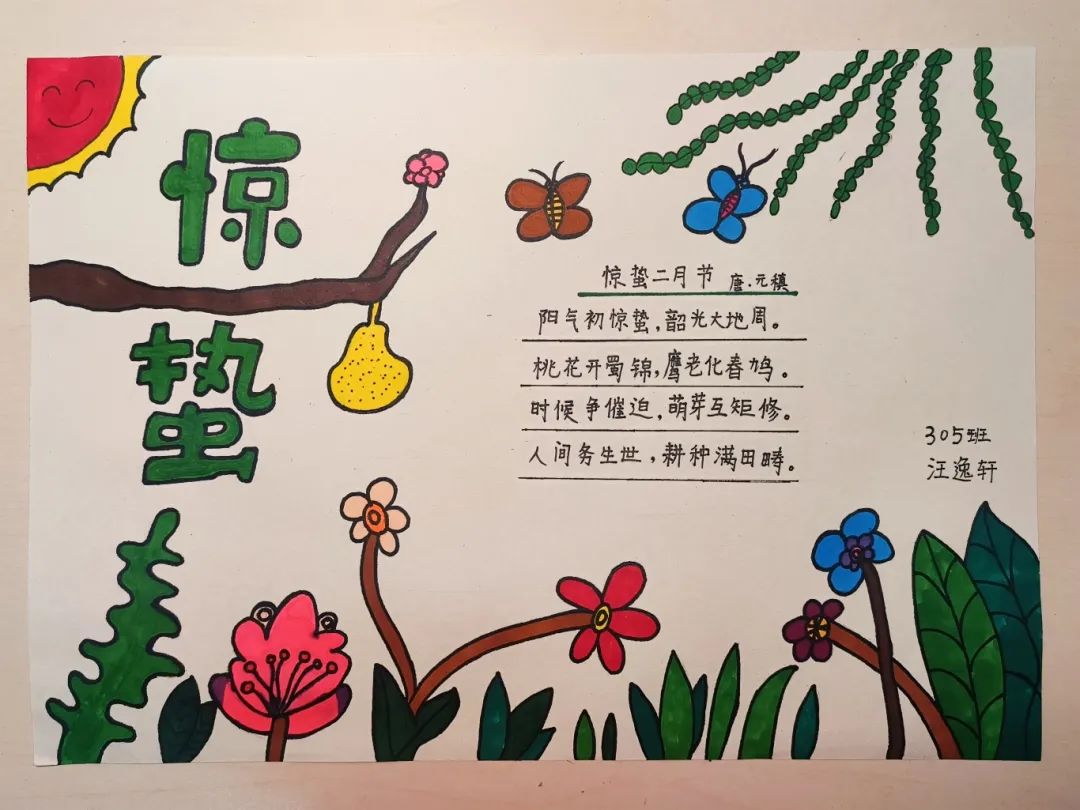 惊
蛰
惊蛰二月节 唐.元稹
阳气初惊蛰,韶光大地周。
桃花开蜀锦,鹰老化春鸠。
时候争催迫,萌芽互矩修。
人间务生世,耕种满田畴。
305班
汪逸轩